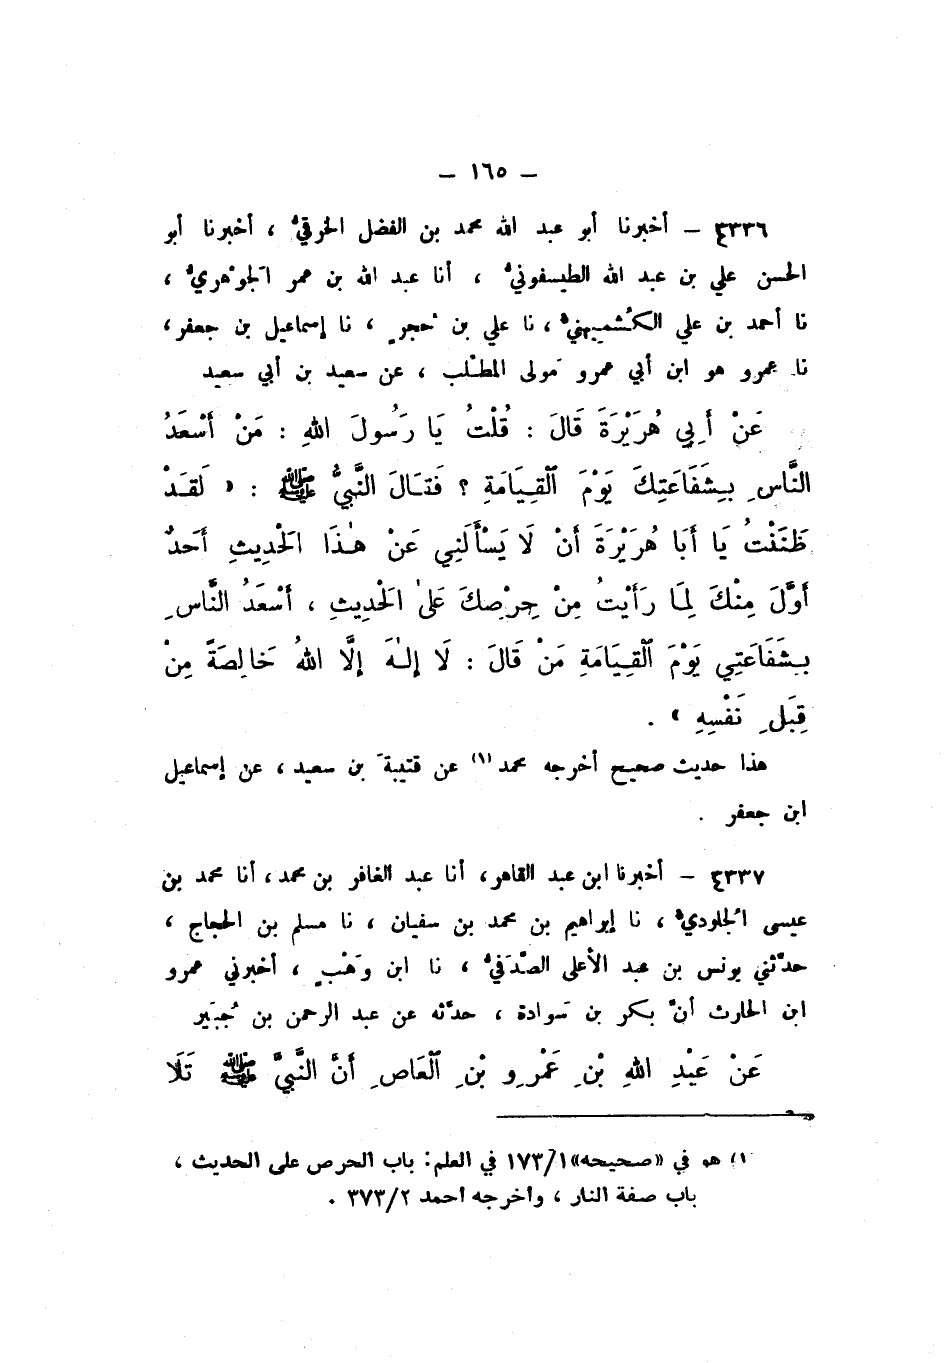 — ١٦٥ —
٤٣٣٦ — أخبرنا أبو عبد الله محمد بن الفضل الخرقيُّ ، أخبرنا أبو
الحسن علي بن عبد الله الطيسفونيُّ ، أنا عبد الله بن عمر الجوْهريُّ ،
نا أحمد بن علي الكُشميهنيُّ ، نا علي بن حُجرٍ ، نا إسماعيل بن جعفر ،
نا عمرو هو ابن أبي عمرو مَولى المطّلب ، عن سعيد بن أبي سعيد
عَنْ أَبِي هُرَيْرَةَ قَالَ : قُلْتُ يَا رَسُولَ اللهِ : مَنْ أَسْعَدُ
النَّاسِ بِشَفَاعَتِكَ يَوْمَ ٱلْقِيَامَةِ ؟ فَقَالَ النَّبِيُّ ﷺ : « لَقَدْ
ظَنَنْتُ يَا أَبَا هُرَيْرَةَ أَنْ لَا يَسْأَلَنِي عَنْ هٰذَا الْحَدِيثِ أَحَدٌ
أَوَّلَ مِنْكَ لِمَا رَأَيْتُ مِنْ حِرْصِكَ عَلَىٰ الْحَدِيثِ ، أَسْعَدُ النَّاسِ
بِشَفَاعَتِي يَوْمَ ٱلْقِيَامَةِ مَنْ قَالَ : لَا إِلٰهَ إِلَّا اللهُ خَالِصَةً مِنْ
قِبَلِ نَفْسِهِ » .
هذا حديث صحيح أخرجه محمد (١) عن قتيبةَ بن سعيد ، عن إسماعيل
ابن جعفر .
٤٣٣٧ — أخبرنا ابن عبد القاهر ، أنا عبد الغافر بن محمد ، أنا محمد بن
عيسى الجُلوديُّ ، نا إبراهيم بن محمد بن سفيان ، نا مسلم بن الحجاج ،
حدَّثني يونس بن عبد الأعلى الصَّدَفيُّ ، نا ابن وَهْبٍ ، أخبرني عمرو
ابن الحارث أنَّ بكر بن سَوادة ، حدَّثه عن عبد الرحمن بن جُبَير
عَنْ عَبْدِ اللهِ بْنِ عَمْرِو بْنِ ٱلْعَاصِ أَنَّ النَّبِيَّ ﷺ تَلَا
١) هو في «صحيحه» ١٧٣/١ في العلم: باب الحرص على الحديث ،
باب صفة النار ، وأخرجه أحمد ٣٧٣/٢ .